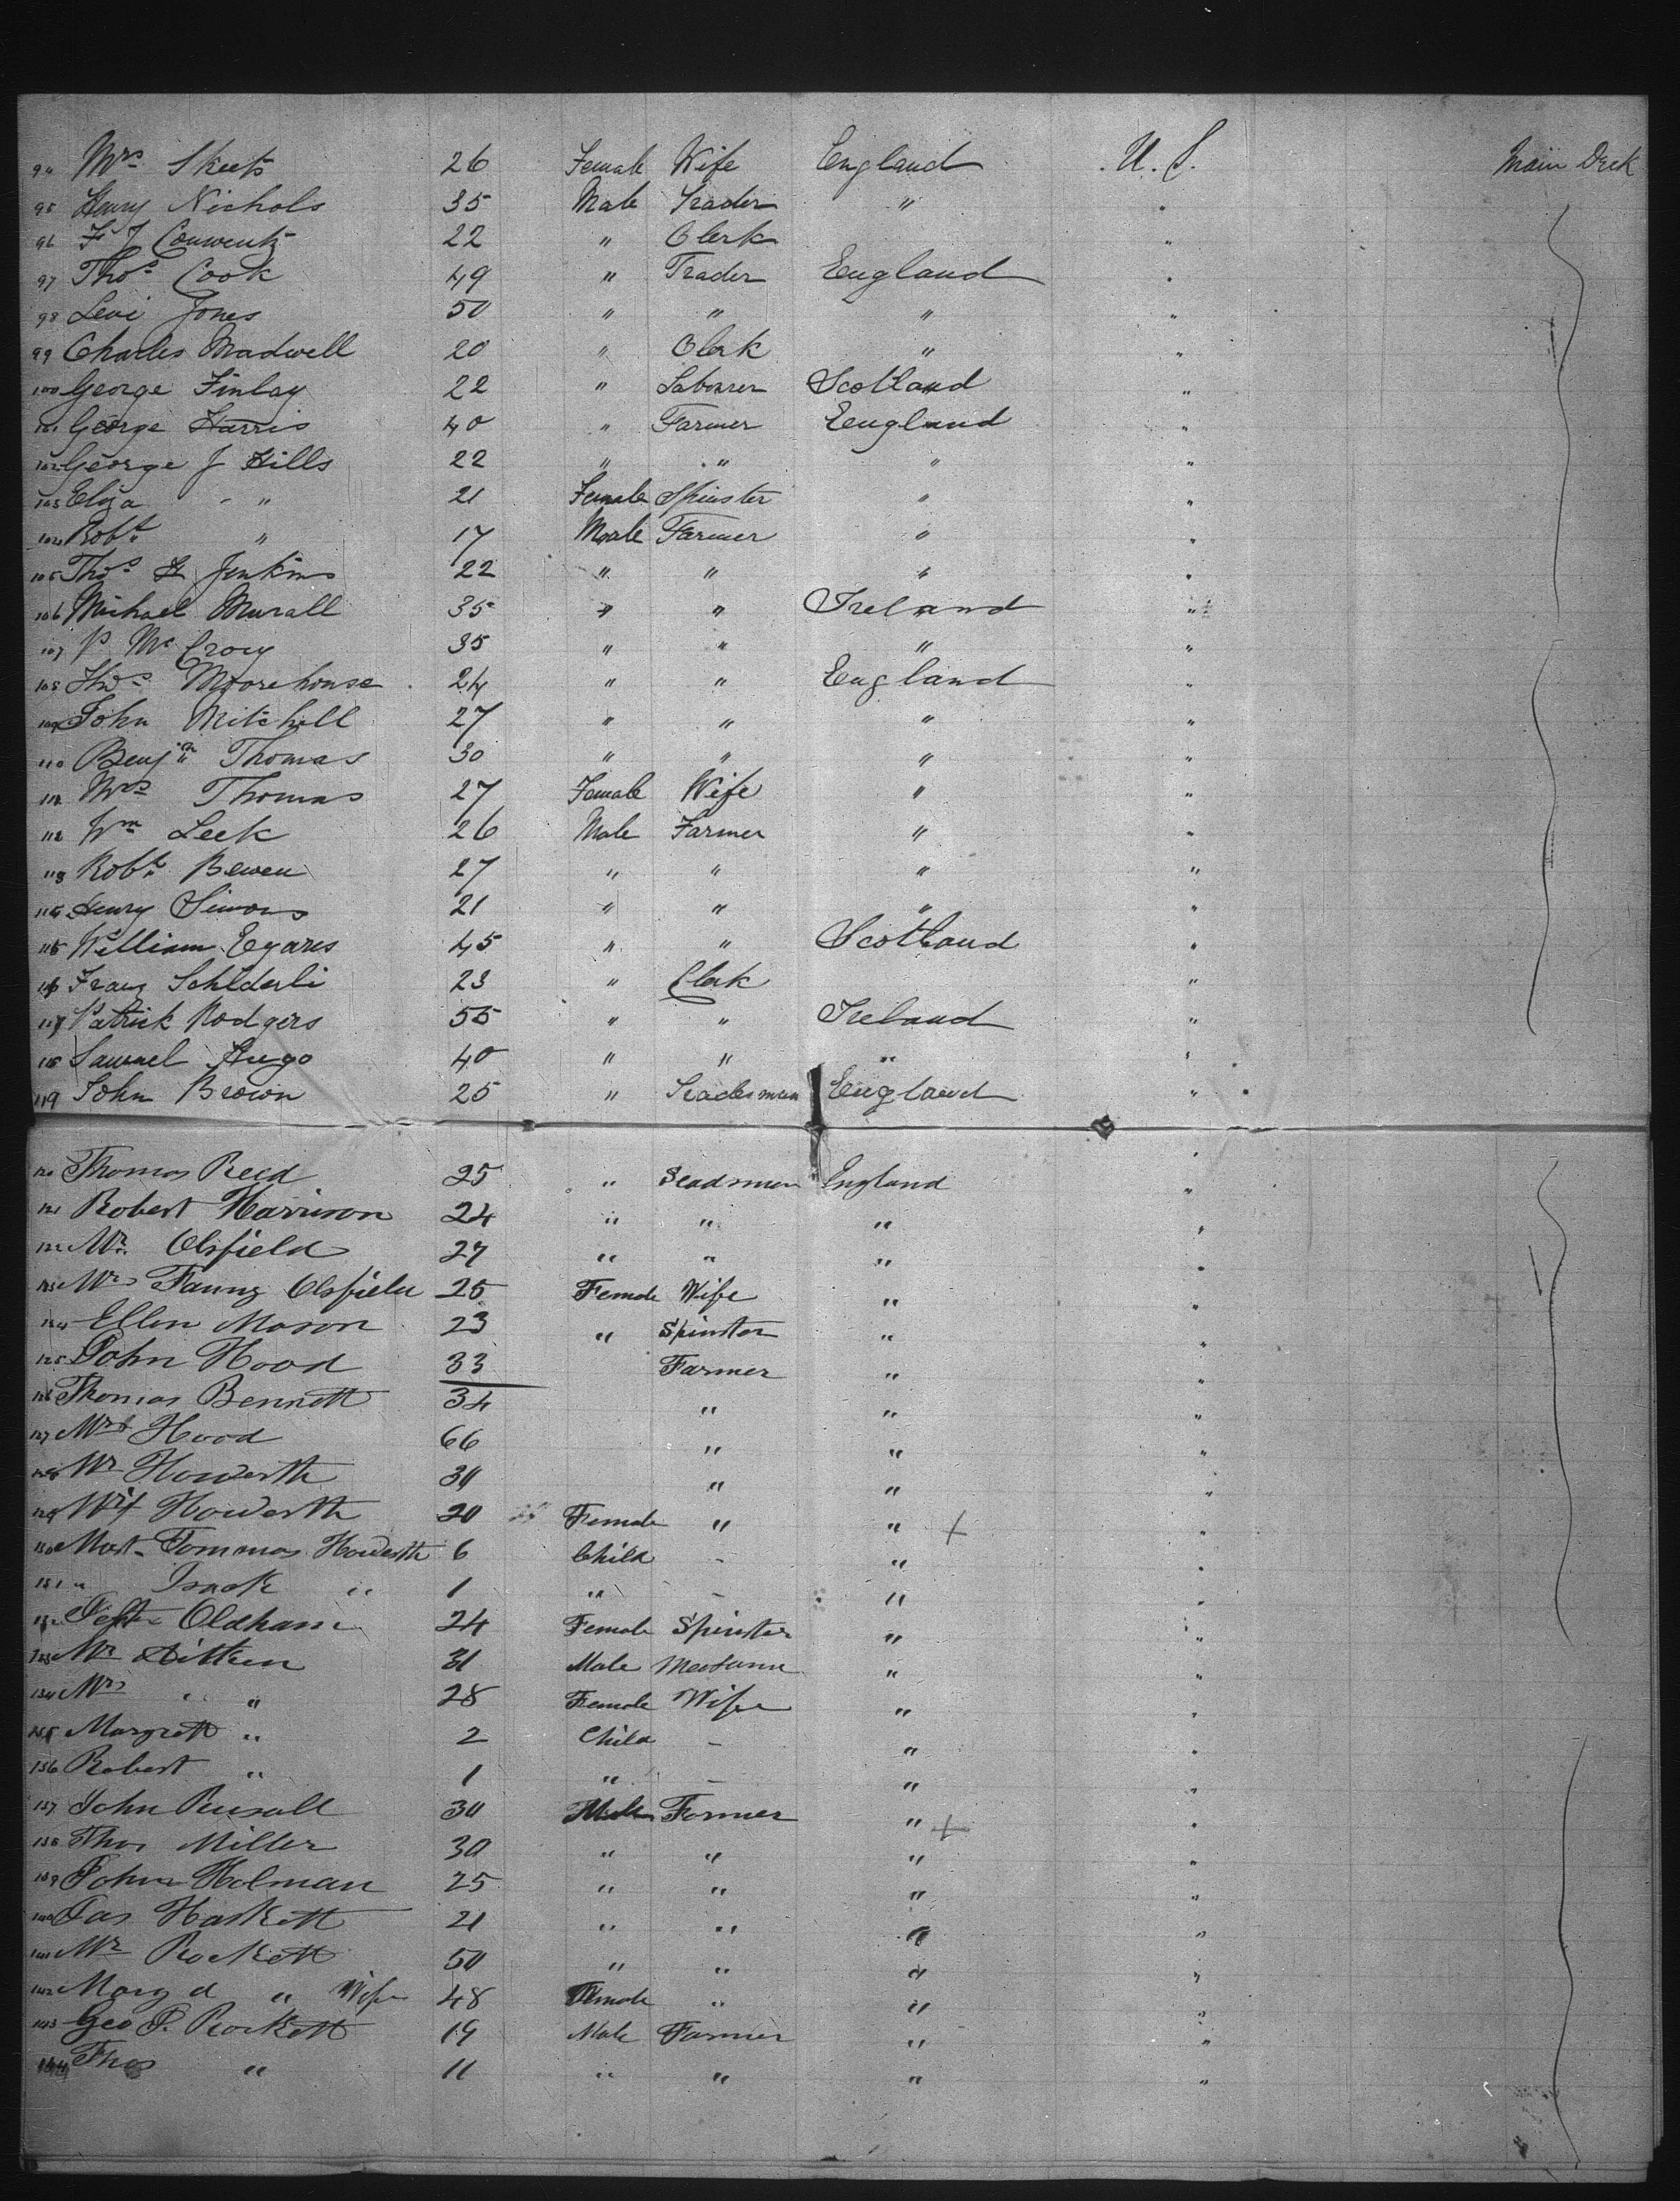 94 Mrs Skeets 26 Female Wife England U. S. Main Deck
95 Henry Nichols 35 Male Trader " "
96 F J Couwentz 22 " Clerk "
97 Thos Cook 49 " Trader England "
98 Levi Jones 50 " " " "
99 Charles Madwell 20 " Clerk " "
100 George Finlay 22 " Labourer Scotland "
101 George Harris 40 " Farmer England "
102 George J Hills 22 " " " "
103 Eliza " 21 Female Spinster " "
104 Robt " 17 Male Farmer " "
105 Thos H Jenkins 22 " " " "
106 Michael Murall 35 " " Ireland "
107 P Mc Crory 35 " " " "
108 Thos Moorehouse 24 " " England "
109 John Mitchell 27 " " " "
110 Benjn Thomas 30 " " " "
111 Mrs Thomas 27 Female Wife " "
112 Wm Leek 26 Male Farmer " "
113 Robt Bewen 27 " " " "
114 Henry Simons 21 " " " "
115 William Egares 45 " " Scotland "
116 Franz 23 " Clerk "
117 Patrick Rodgers 55 " " Ireland "
118 Samuel Hugo 40 " " " "
119 John Brown 25 " Tradesman England "
120 Thomas Reed 25 " England "
121 Robert Harrison 24 " " " "
122 Mr. Olsfield 27 " " " "
123 Mrs Fanny Olsfield 25 Female Wife " "
124 Ellen Mason 23 " Spinster " "
125 John Hood 33 Farmer " "
126 Thomas Bennett 34 " " "
127 Mrs Hood 66 " " "
128 Mr Howerth 30 " " "
129 Howerth 20 Female " " + "
130 Mast. Tommas Howerth 6 Child - " "
131 " Isack " 1 " - " "
132 Oldham 24 Female Spinster " "
133 Mr Aitken 31 Male " "
134 Mrs " 28 Female Wife " "
135 Margrett " 2 Child - " "
136 Robert " 1 " - " "
137 John 30 Male Farmer " + "
138 Thos Miller 30 " " " "
139 John Holman 25 " " " "
140 Jas Haskett 21 " " " "
141 Mr Rockett 50 " " " "
142 Mary d " Wife 48 Female " " "
143 Geo P. Rockett 19 Male Farmer " "
144 Thos " 11 " " " "